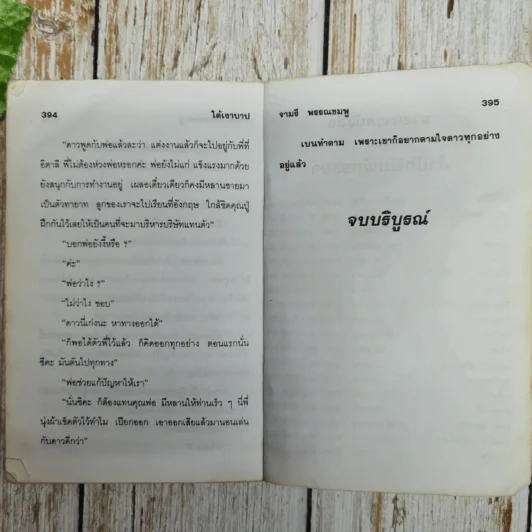 394
ใต้เงาบาป
"ดาวพูดกับพ่อแล้วละว่า แต่งงานแล้วก็จะไปอยู่กับพี่ที่
อิตาลี พี่ไม่ต้องห่วงพ่อหรอกค่ะ พ่อยังไม่แก่ แข็งแรงมากด้วย
ยังสนุกกับการทำงานอยู่ เผลอเดี๋ยวเดียวก็คงมีหลานชายมา
เป็นตัวทายาท ลูกของเราจะไปเรียนที่อังกฤษ ใกล้ชิดคุณปู่
ฝึกกันไว้เลยให้เป็นคนที่จะมาบริหารบริษัทแทนตัว"
"บอกพ่อยังงี้หรือ ?"
"ค่ะ"
"พ่อว่าไง ?"
"ไม่ว่าไง ชอบ"
"ดาวนี่เก่งนะ หาทางออกได้"
"ก็พอได้ตัวพี่ไว้แล้ว ก็คิดออกทุกอย่าง ตอนแรกนั่น
ซีคะ มันตันไปทุกทาง"
"พ่อช่วยแก้ปัญหาให้เรา"
"นั่นซิคะ ก็ต้องแทนคุณพ่อ มีหลานให้ท่านเร็ว ๆ นี่พี่
นุ่งผ้าเช็ดตัวไว้ทำไม เปียกออก เอาออกเสียแล้วมานอนเล่น
กับดาวดีกว่า"
จามรี พรรณชมพู
395
เบนทำตาม เพราะเขาก็อยากตามใจดาวทุกอย่าง
อยู่แล้ว
จบบริบูรณ์